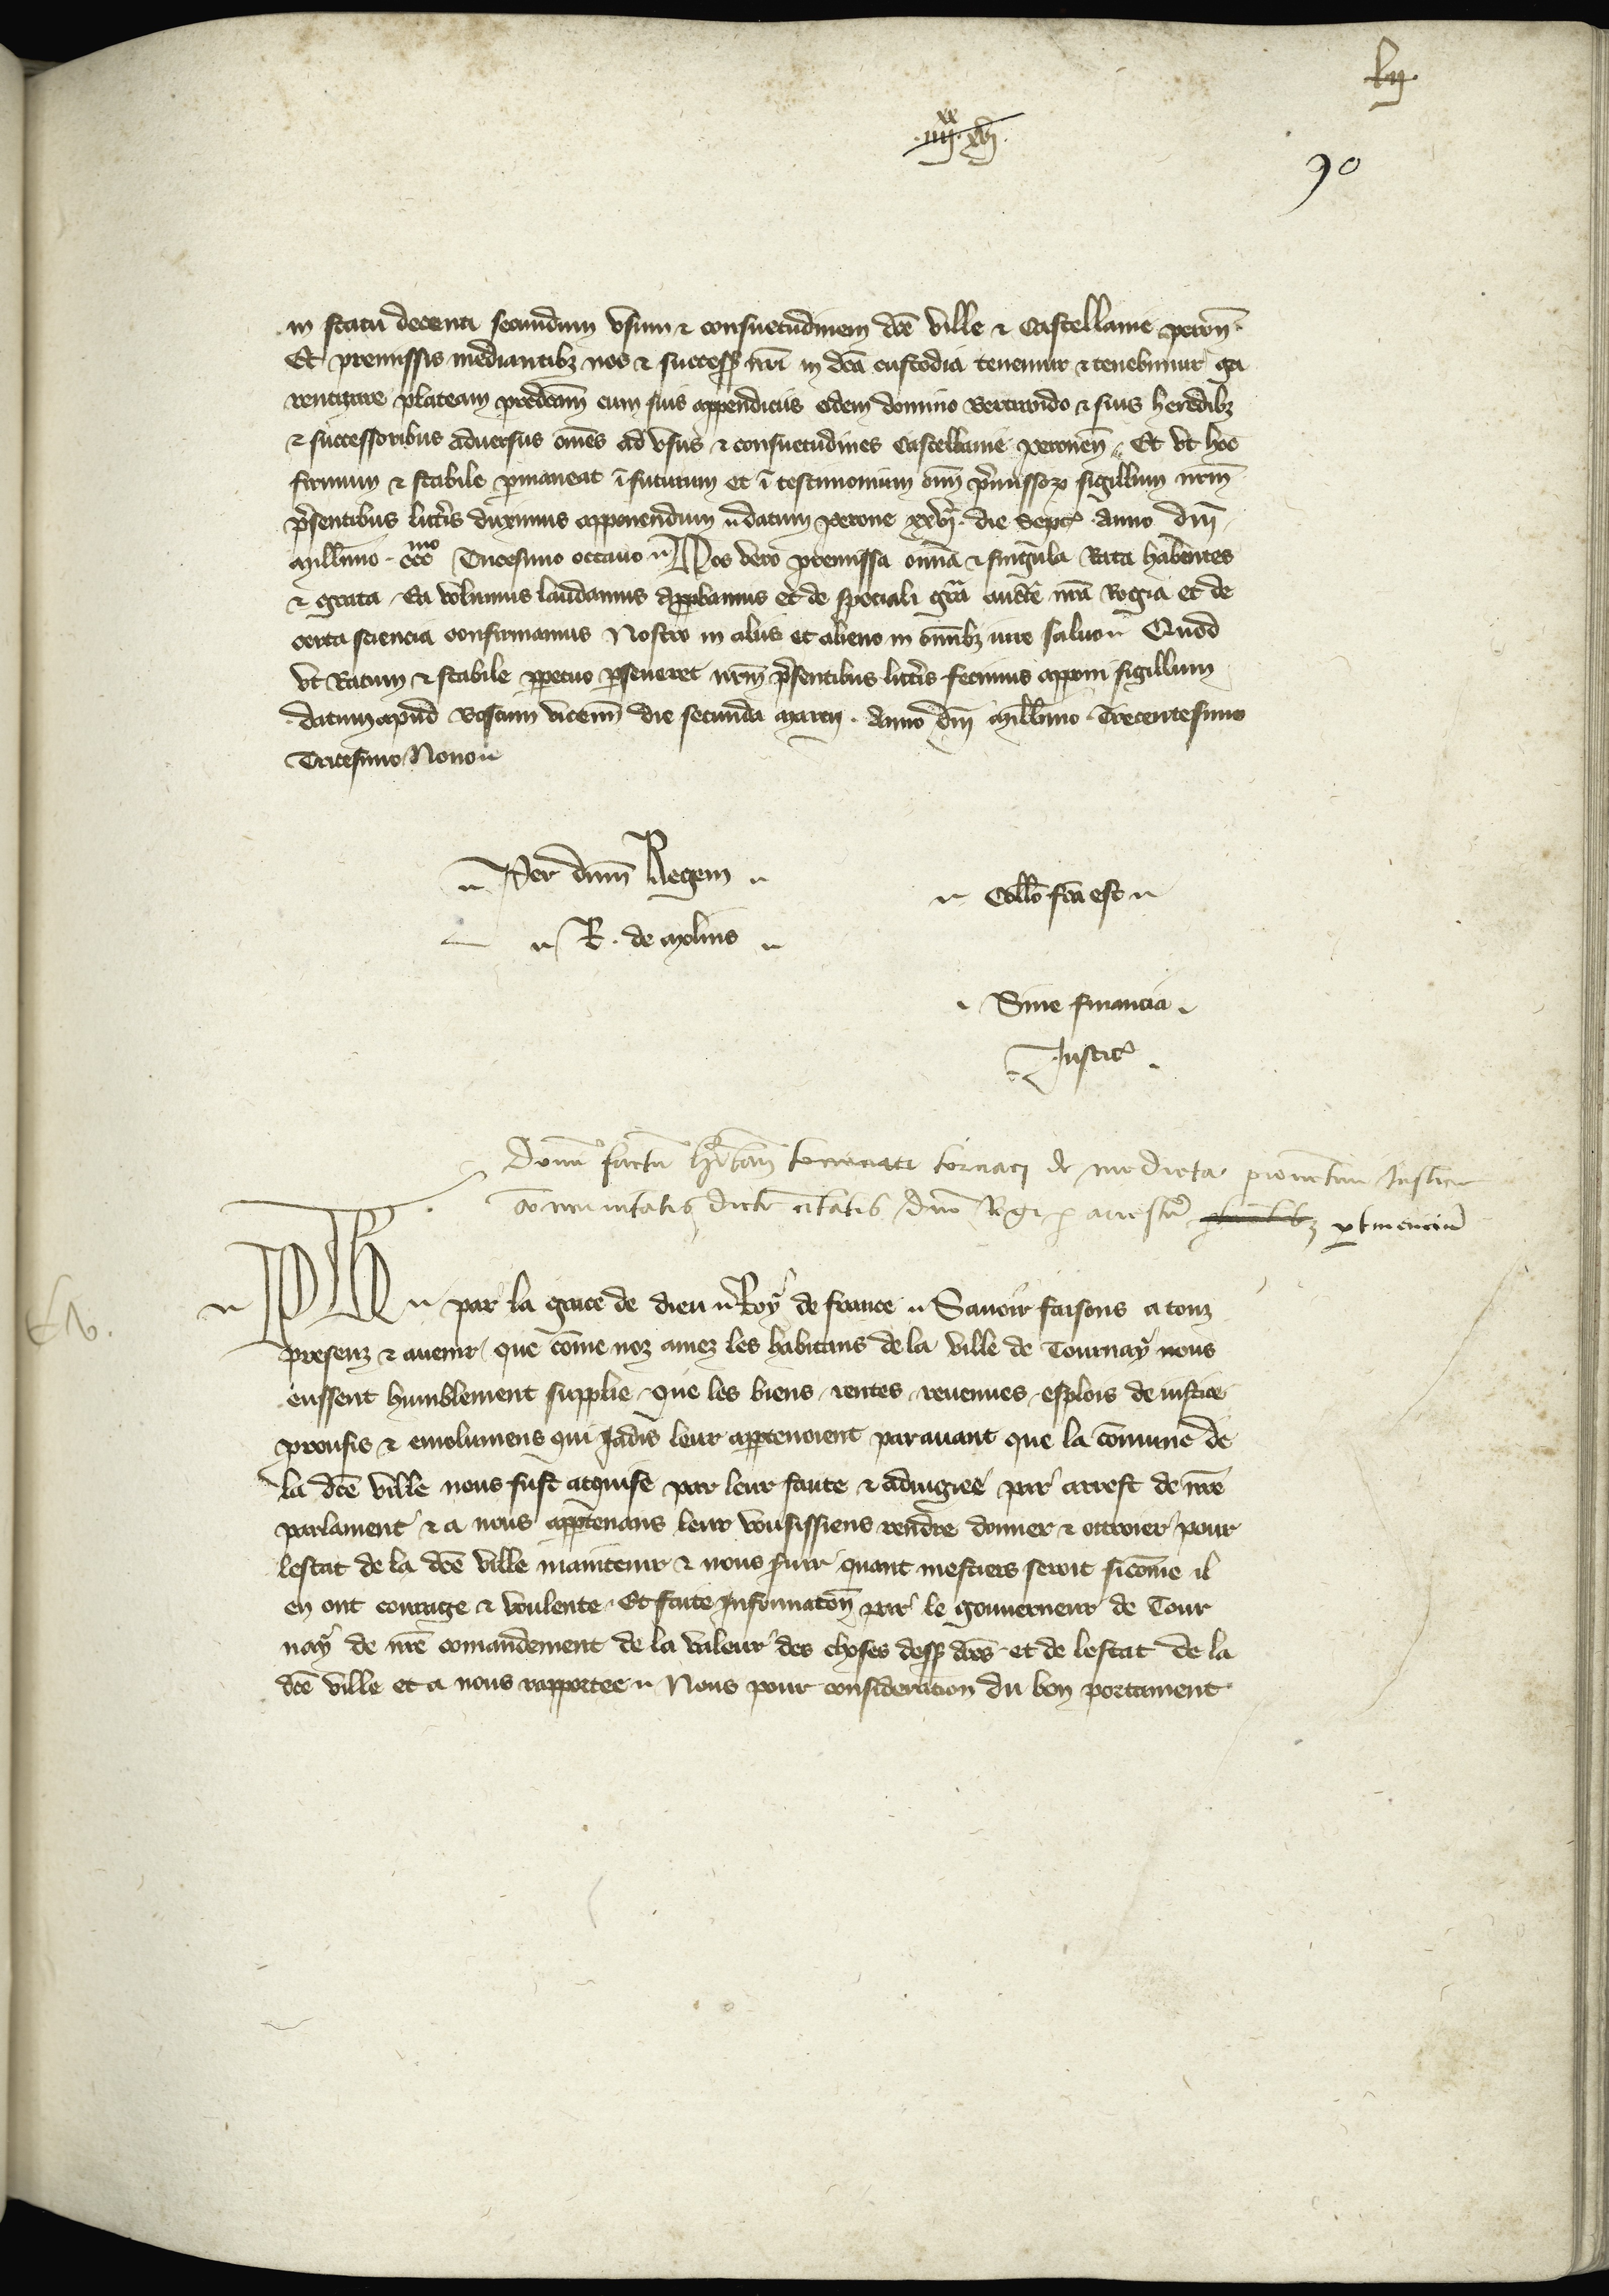 lii
iiii xx xvi
90
in statu decenti secundum usum & consuetudinem dce ville & Castellanie peron.
Et premissis mediantibz nos & success nri in dca custodia tenemur & tenebimur ga
rentizare plateam predcam cum suis appendiciis eidem domino Bertrando & suis heredibz
& successoribus adversus omes ad usus & consuetudines Castellanie peronen. Et ut hoc
firmum & stabile pmaneat i futurum et i testimonium oim pmissor sigillum nrm
psentibus littis duximus apponendum datum perone xxvi die Sept anno dni
millimo ccc mo Tricesimo octavo Nos vero premissa omia & singula Rata habentes
& grata Ea volumus laudamus approbamus et de speciali gra aucte nra Regia et de
certa sciencia confirmamus Nostro in aliis et alieno in omibz iure salvo Quod
ut Ratum & stabile ppetuo pseveret nrm psentibus littis fecimus apponi sigillum
datum apud Boscum vicenn die secunda marcii Anno dni millimo Trecentesimo
Tricesimo Nono
Per dnm Regem
R. de molins
Collo fca est
Sine financia
Justic
Donu factu hitan tornaci de medieta
comunitatis dicte civitatis dno Regi p arrestu ptinenciu
Ph par la grace de dieu Roy de france Savoir faisons a touz
presenz & avenir que come noz amez les habitans de la ville de Tournay nous
eussent humblement supplie que les biens rentes revenues esplois de iustice
proufis & emolumens qui Jadis leur apptenoient paravant que la comune de
la dce ville nous fust acquise par leur faute & adiugiee par arrest de nre
parlament & a nous apptenans leur vousissiens rendre donner & ottroier pour
lestat de la dce ville maintenir & nous svir quant mestiers seroit sicome il
en ont courage & voulente Et faite Informaton par le gouverneur de Tour
nay de nre comandement de la valeur des choses dess dces et de lestat de la
dce ville et a nous rapportee Nous pour consideration du bon portament